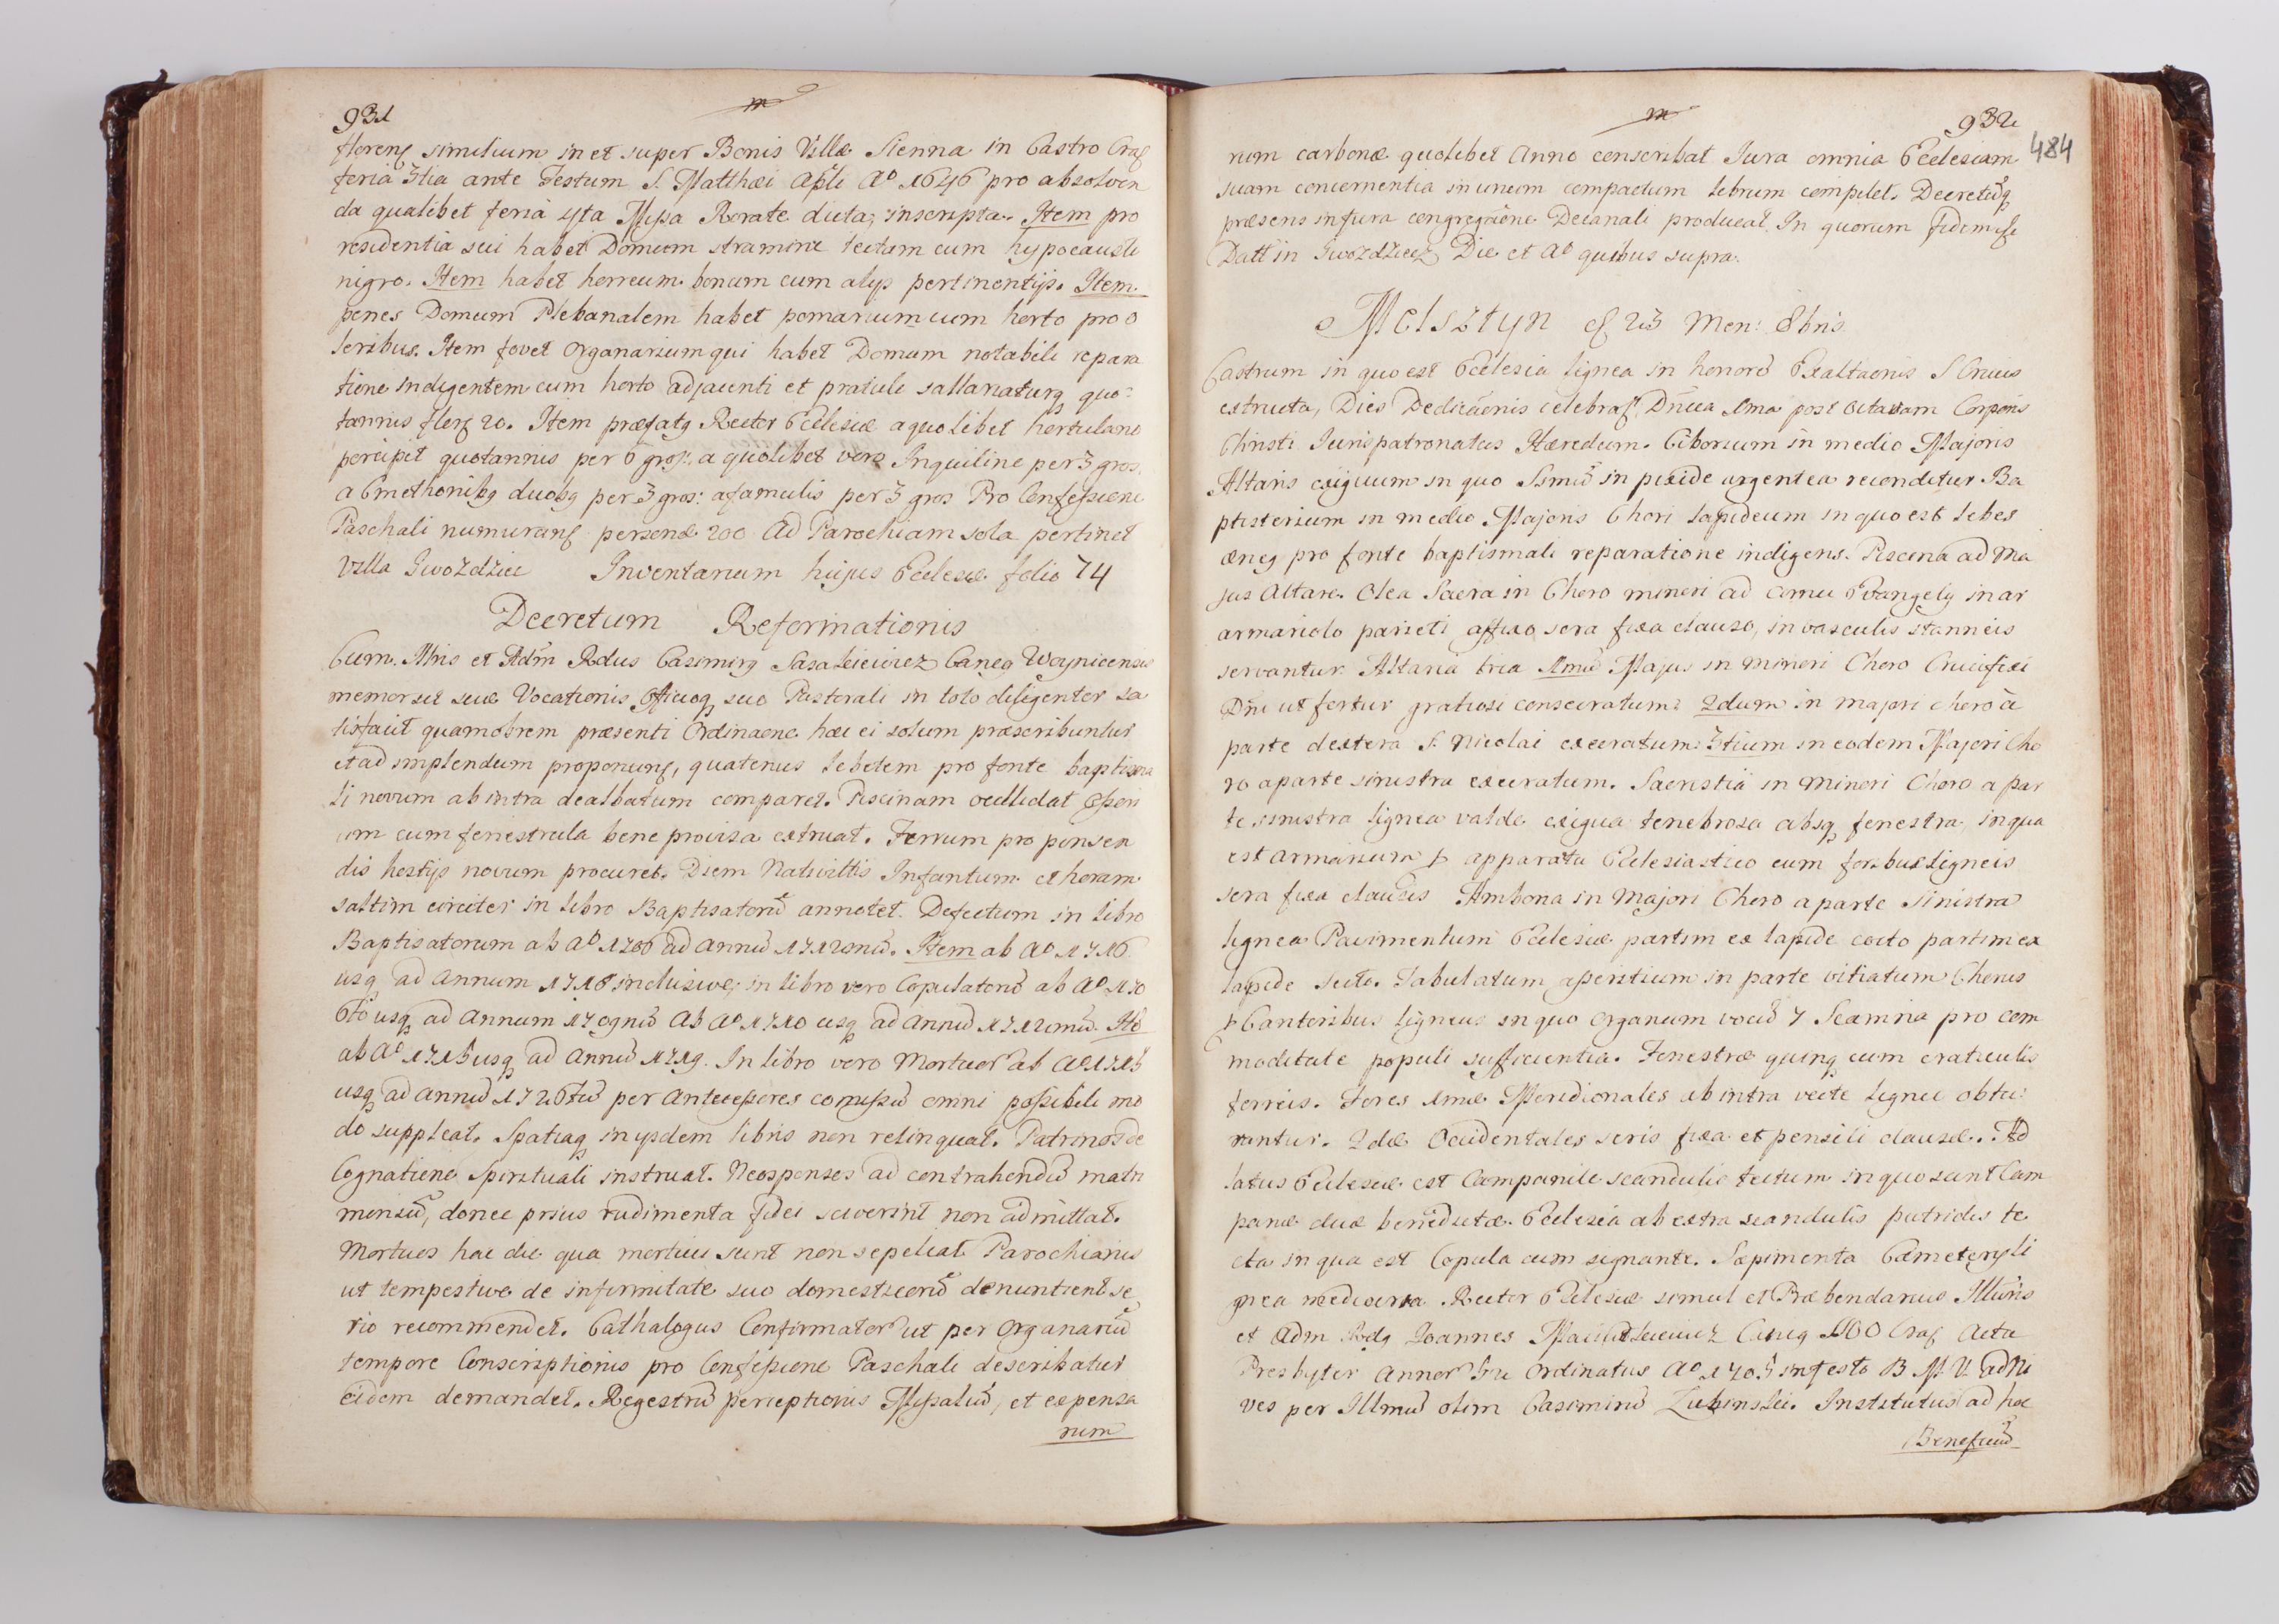 931
floren similium in et super Bonis Villæ Sienna in Castro Crac
feria 3tia ante Festum S. Matthæi Apli Aº 1646 pro absolven
da qualibet feria 4ta Missa Rorate dicta, inscripta. Item pro
residentia sui habet Domum stramine tectam cum hypocausto
nigro. Item habet horreum bonum cum alijs pertinentijs. Item
penes Domum Plebanalem habet pomarium cum horto pro o
leribus. Item fovet Organarium qui habet Domum notabili repara
tione indigentem cum horto adjacenti et pratulo sallariaturq quo-
tannis flor 20. Item præfatq Rector Ecclesiæ a quolibet hortulano
percipit quotannis per 6 gros. a quolibet vero Inquilino per 3 gros.
a Cmethonibq duobq per 3 gros: a famulis per 3 gros Pro Confessione
Paschali numurant personæ 200 Ad Parochiam sola pertinet
Villa Gwozdziec Inventarium hujus Ecclesiæ folio 74
Decretum Reformationis
Cum Illris et Adm Rdus Casimirq Cancq Woynicensis
memor sit suæ Vocationis officioq suo Pastorali in toto diligenter sa
tisfacit quamobrem præsenti Ordinaone hæc ei solum præscribuntur
et ad implendum proponunt, quatenus lebetem pro fonte baptisma
li novum ab intra dealbatum comparet. Piscinam
um cum fenestrula bene provisa extruat. Ferrum pro
dis hostijs novum procuret. Diem Nativittis Infantum et horam
saltim circiter in libro Baptisatorũ annotet. Defectum in libro
Baptisatorum ab Aº 1706 ad annũ 1712mũ. Item ab Aº 1716
usq ad Annum 1718 inclusive, in libro vero Copulatorũ ab Aº 170
6to usq ad Annum 1709nũ Ab Aº 1710 usq ad Annũ 1712mũ. Ite
ab Aº 1715 usq ad Annũ 1719. In libro vero Mortuor ab Aº 1715
usq ad Annũ 1726tũ per Antecessores comissũ omni possibili mo
do suppleat. Spatiaq in ijsdem libris non relinquat. Patrinos de
Cognatione Spirituali instruat. Neosponsos ad contrahendũ matri
moniũ, donec prius rudimenta fidei sciverint non admittat.
Mortuos hac die qua mortui sunt non sepeliat Parochianis
ut tempestive de infirmitate suo domesticorũ denuntient se
rio recommendet. Cathalogus Confirmator ut per Organariũ
tempore Conscriptionis pro Confessione Paschali describatur
eidem demandet. Regestrũ perceptionis Missaliũ, et expensa
rum
932
484
rum carbonæ quolibet Anno conscribat Iura omnia Ecclesiam
suam concernentia in unum compactum librum compilet. Decretũq
præsens in futura congregaone Decanali producat. In quorum fidem
Datt in Gwozdziec Die et Aº quibus supra.
Melsztyn 23 Men: 8bris
Castrum in quo est Ecclesia lignea in honorẽ Exaltaonis S Crucis
extructa, Dies Dedicaonis celebrat Dnica 1ma post Octavam Corporis
Christi Iurispatronatus Hæredum. Ciborium in medio Majoris
Altaris exiguum in quo Ssmũ in pixide argentea reconditur Ba
ptisterium in medio Majoris Chori lapideum in quo est lebes
æneq pro fonte baptismali reparatione indigens. Piscina ad Ma
jus Altare. Olea Sacra in Choro minori ad cornu Evangelij in ar
armariolo parieti affixo sera fixa clauso, in vasculis stanneis
servantur. Altaria tria 1mũ Majus in minori Choro Crucifixi
Dni ut fertur gratiosi consecratum: 2dum in majori choro à
parte dextera S. Nicolai execratum: 3tium in eodem Majori Cho
ro a parte sinistra execratum. Sacristia in Minori Choro a par
te sinistra lignea valde exigua tenebrosa absq fenestra, in qua
est armarium p apparatu Ecclesiastico cum foribus ligneis
sera fixa clausis Ambona in Majori Choro a parte Sinistra
lignea Pavimentum Ecclesiæ partim ex lapide cocto partim ex
lapide secto. Tabulatum asseritium in parte vitiatum Chorus
p Cantoribus ligneus in quo Organum vocũ 7 Scamna pro com
moditate populi sufficientia. Fenestræ quinq cum craticulis
ferreis. Fores 1mæ Meridionales ab intra vecte ligneo obtu:
rantur. 2dæ Occidentales seris fixa et pensili clausæ. Ad
latus Ecclesiæ est Campanile scandulis tectum in quo sunt Cam
panæ duæ benedictæ. Ecclesia ab extra scandulis putridis te
cta in qua est Copula cum signante. Sæpimenta Cæmeterij li
gnea mediocria. Rector Ecclesiæ simul et Præbendarius Illuris
et Adm Rdq Joannes Crac Actu
Presbyter Annor Ordinatus Aº 1705 in festo B M V ad Ni
ves per Illmũ olim Casimirũ Łubinski. Institutus ad hoc
Beneficiũ